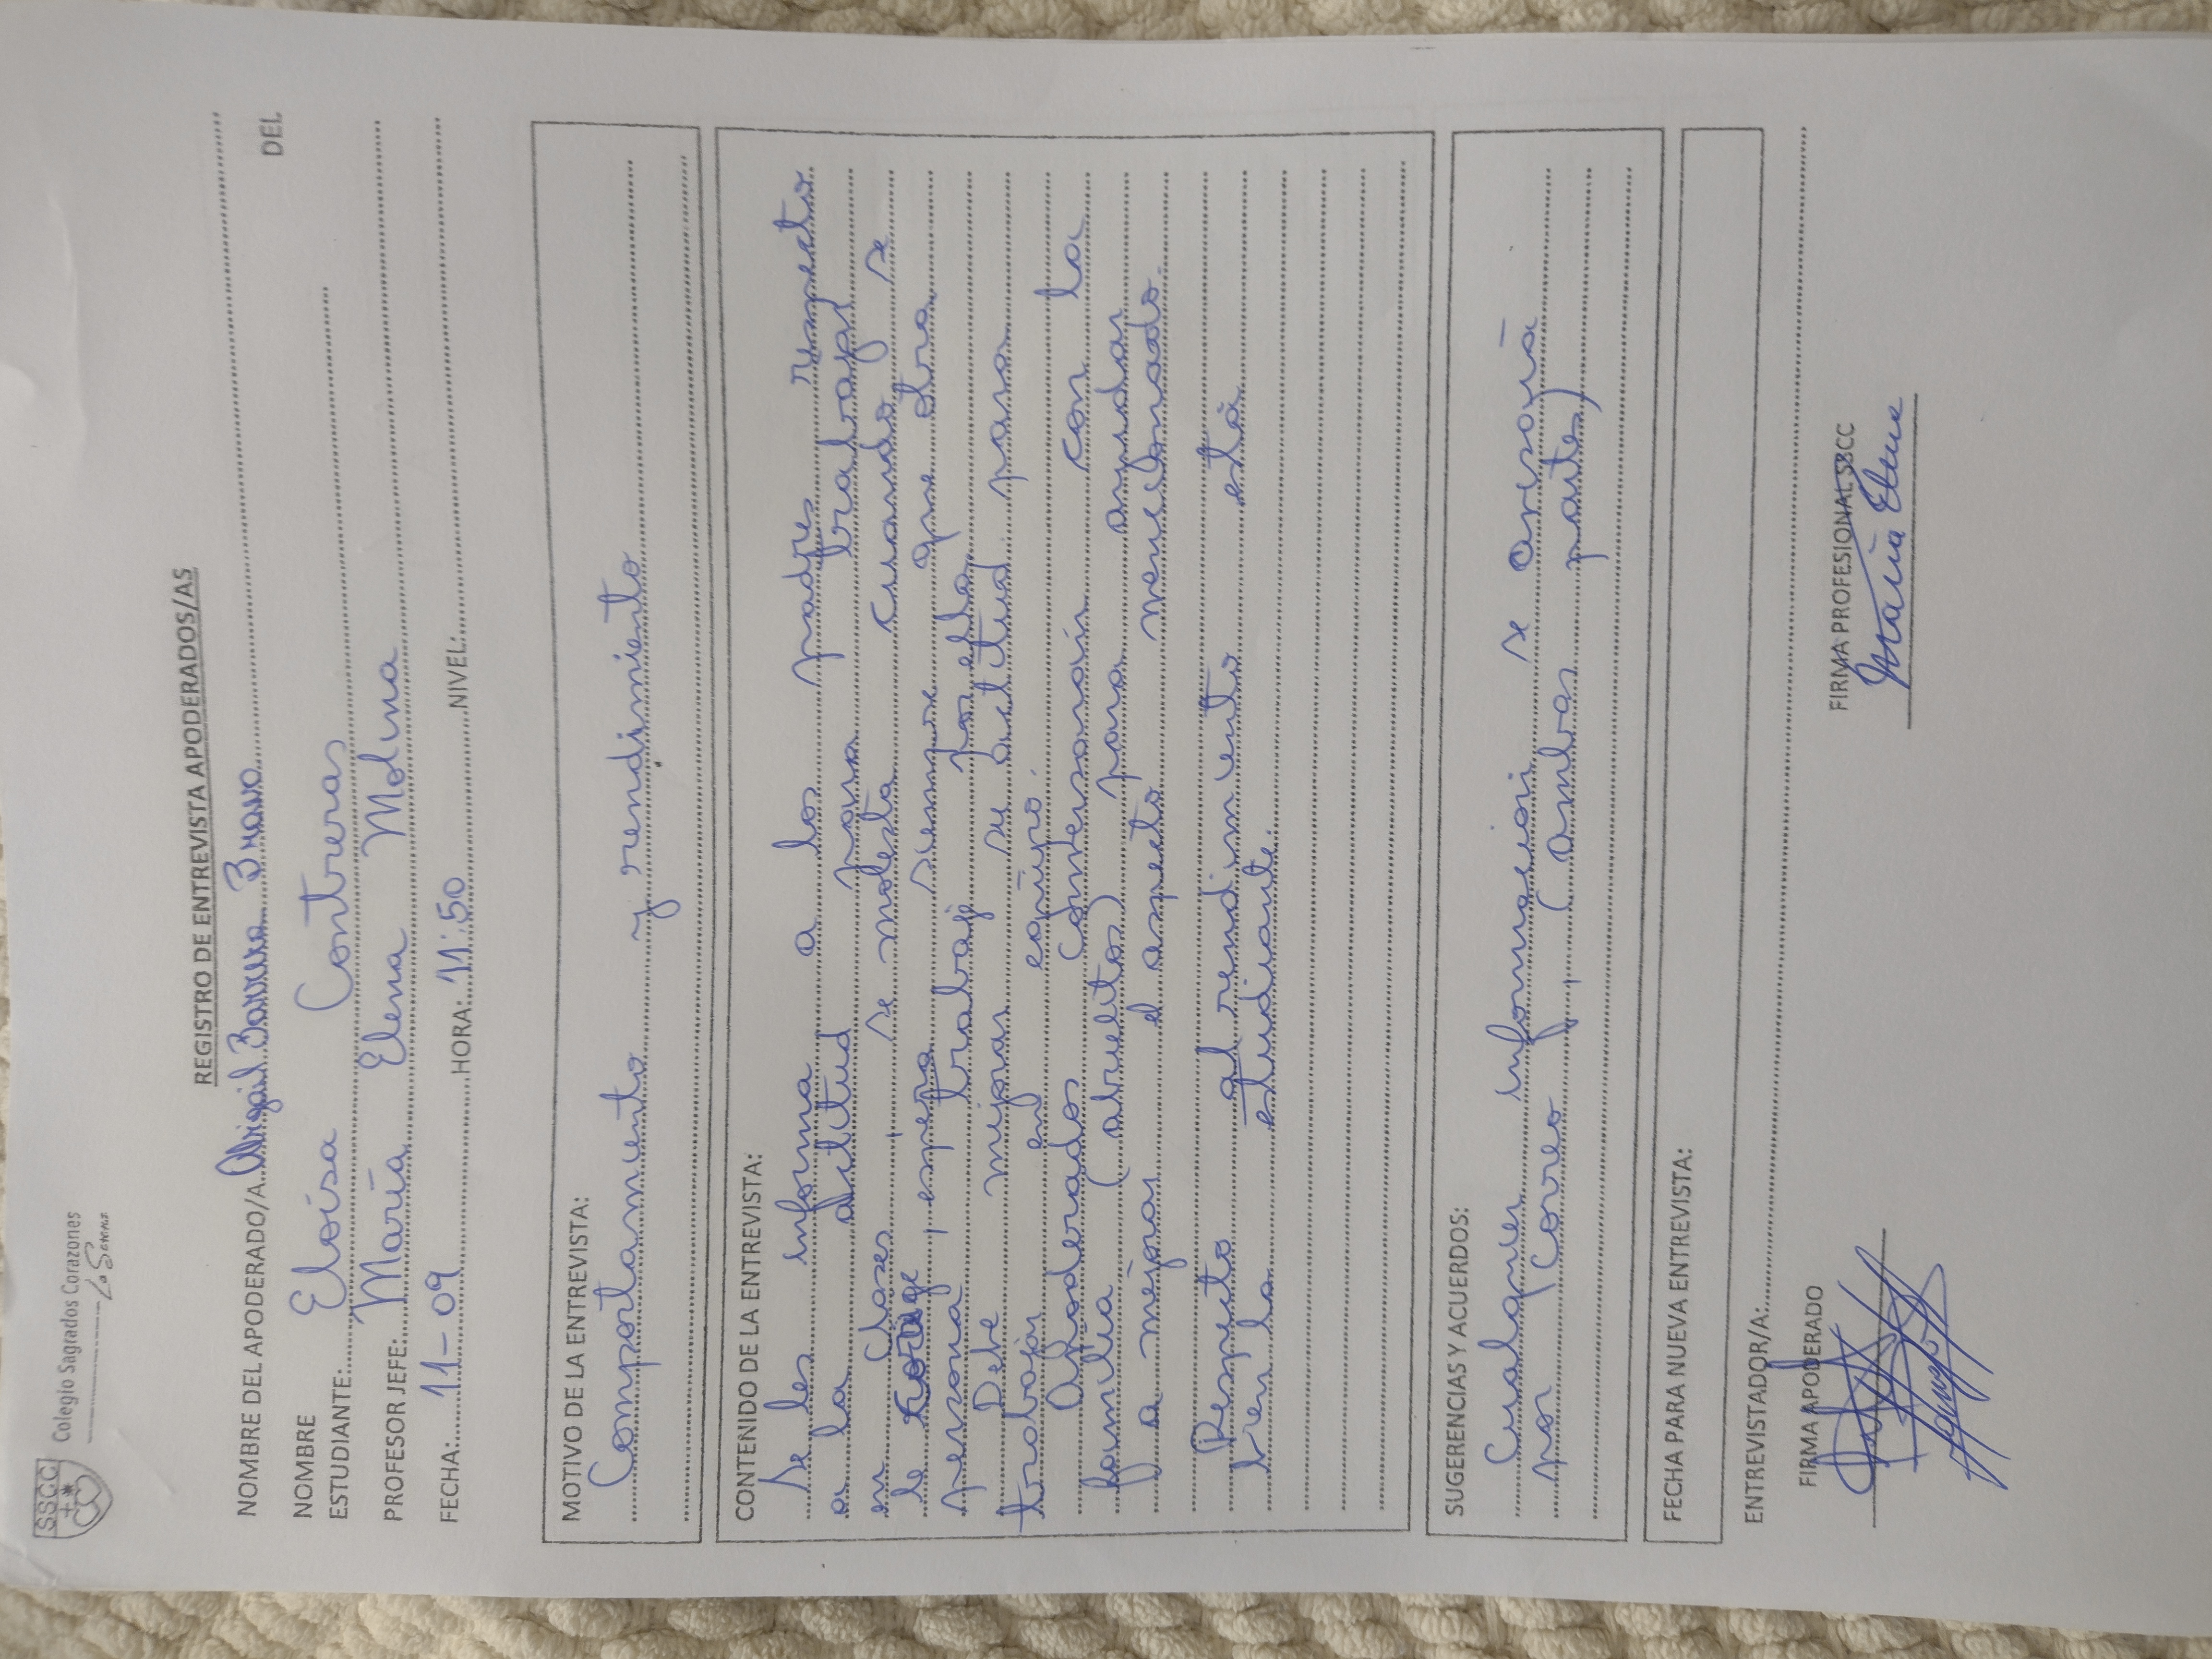 SSCC
Colegio Sagrados Corazones
La Serena
REGISTRO DE ENTREVISTA APODERADOS/AS
NOMBRE DEL APODERADO/A Abigail Barrera Bravo
NOMBRE DEL
ESTUDIANTE: Eloísa Contreras
PROFESOR JEFE: María Elena Molina
FECHA: 11-09 HORA: 11:50 NIVEL:
MOTIVO DE LA ENTREVISTA:
Comportamiento y rendimiento
CONTENIDO DE LA ENTREVISTA:
Se les informa a los padres respecto
a la actitud para trabajar
en clases, se molesta cuando se
le corrige, espera siempre que otra
persona trabaje por ella.
Debe mejorar su actitud para
trabajar en equipo.
Apoderados conversarán con la
familia (abuelitos) para ayudar
a mejorar el aspecto mencionado.
Respecto al rendimiento está
bien la estudiante.
SUGERENCIAS Y ACUERDOS:
Cualquier información se avisará
por correo, (ambas partes)
FECHA PARA NUEVA ENTREVISTA:
ENTREVISTADOR/A:
FIRMA APODERADO FIRMA PROFESIONAL SSCC
María Elena